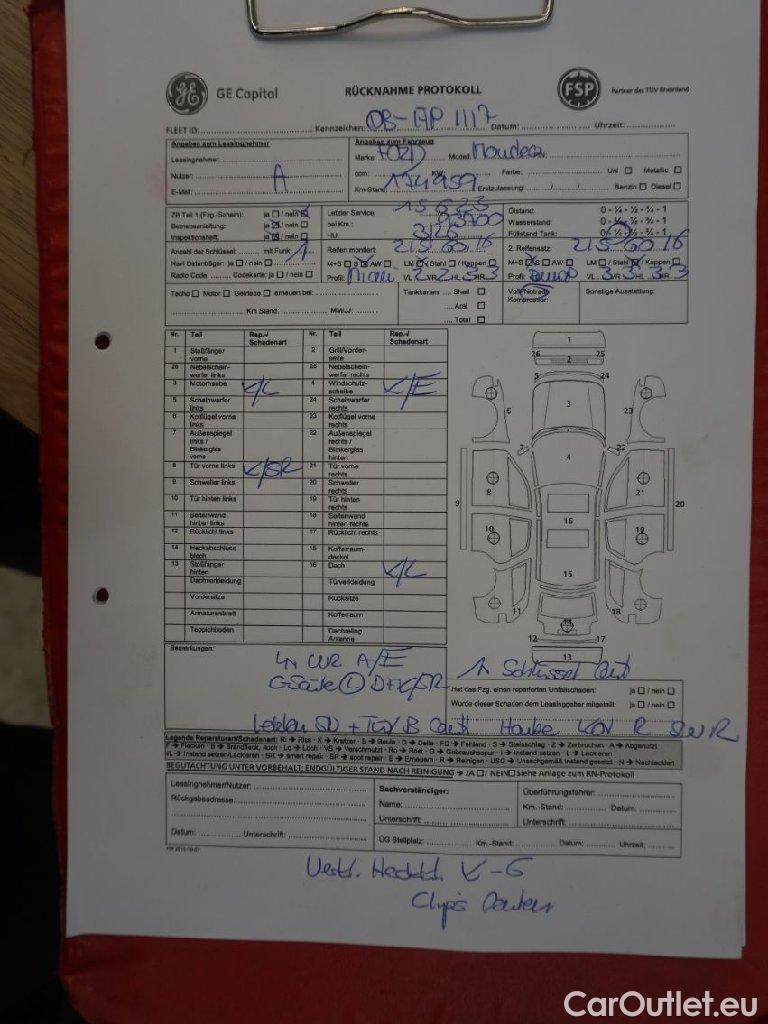 GE Capital RÜCKNAHME PROTOKOLL FSP Partner des TÜV Rheinland
FLEET ID: Kennzeichen: OB-AP 1117 Datum: Uhrzeit:
Angaben zum Leasingnehmer
Leasingnehmer:
Nutzer: A
E-Mail:
Angaben zum Fahrzeug
Marke FORD Model: Mondeo
ccm: KW: Farbe: Uni Metallic
Km-Stand: 174959 Erstzulassung: / / Benzin Diesel
ZB Teil 1 (Frg.-Schein): ja / nein
Betriebsanleitung: ja / nein
Inspektionsheft: ja / nein
Letzter Service 15.6.23
bei Km.:
-IU:
Ölstand: 0 - ¼ - ½ - ¾ - 1
Wasserstand 0 - ¼ - ½ - ¾ - 1
Füllstand Tank: 0 - ¼ - ½ - ¾ - 1
Anzahl der Schlüssel: mit Funk 1
Navi Datenträger: ja / nein
Radio Code Codekarte: ja / nein
Reifen montiert 215.60.16
M+S S AW LM Stahl / Kappen
Profil: VL 2 VR 2 HL 5 HR 3
2. Reifensatz 215 60 16
M+S S AW LM / Stahl / Kappen
Profil: VL 3 VR 3 HL 3 HR 3
Tacho Motor Getriebe erneuert bei:
Km Stand: MM/JJ:
Tankkarten Shell
Aral
Total
Voll-/Notrad:
Kompressor:
Sonstige Ausstattung:
Nr. Teil Rep.-/ Schadenart Nr. Teil Rep.-/ Schadenart
1 Stoßfänger vorne 2 Grill/Vorderseite
26 Nebelscheinwerfer links 25 Nebelscheinwerfer rechts
3 Motorhaube K/L 4 Windschutzscheibe K/E
5 Scheinwerfer links 24 Scheinwerfer rechts
6 Kotflügel vorne links 23 Kotflügel vorne rechts
7 Außenspiegel links / Blinkerglas vorne 22 Außenspiegel rechts / Blinkerglas hinten
8 Tür vorne links K/SR 21 Tür vorne rechts
9 Schweller links 20 Schweller rechts
10 Tür hinten links 19 Tür hinten rechts
11 Seitenwand hinten links 18 Seitenwand hinten rechts
12 Rücklicht links 17 Rücklicht rechts
14 Heckabschluss blech 15 Kofferraumdeckel
13 Stoßfänger hinten 16 Dach K/L
Dachverkleidung Türverkleidung
Vordersitze Rücksitze
Armaturenbrett Kofferraum
Teppichboden Dachreling Antenne
1
26 25
2
5 24
3
6 23
7 22
4
8 21
9 20
16
10 19
15
11 18
14
12 17
13
Bemerkungen:
A/E
Hat das Fzg. einen reparierten Unfallschaden: ja / nein
Wurde dieser Schaden dem Leasinggeber mitgeteilt: ja / nein
Legende Reparaturart/Schadenart: Ri → Riss · K → Kratzer · B → Beule · D → Delle · FO → Fehlend · S → Steinschlag · Z → Zerbrochen · A → Abgenutzt
F → Flecken · B → Brandfleck, -loch · Lo → Loch · VS → Verschmutzt · Ro → Rost · G → Gebrauchsspur · I → Instand setzen · L → Lackieren
I/L → Instand setzen/Lackieren · SR → smart repair · SF → spot repair · E → Erneuern · R → Reinigen · USG → Unsachgemäß instand gesetzt · N → Nachlackiert
BEGUTACHTUNG UNTER VORBEHALT: ENDGÜLTIGER STAND NACH REINIGUNG → JA / NEIN Siehe Anlage zum RN-Protokoll
Leasingnehmer/Nutzer:
Rückgabeadresse:
Datum: Unterschrift:
Sachverständiger:
Name:
Unterschrift
Überführungsfahrer:
Km.-Stand: Datum:
Unterschrift:
ÜG Stellplatz: Km.-Stand: Datum: Uhrzeit:
K-G
Clips
CarOutlet.eu